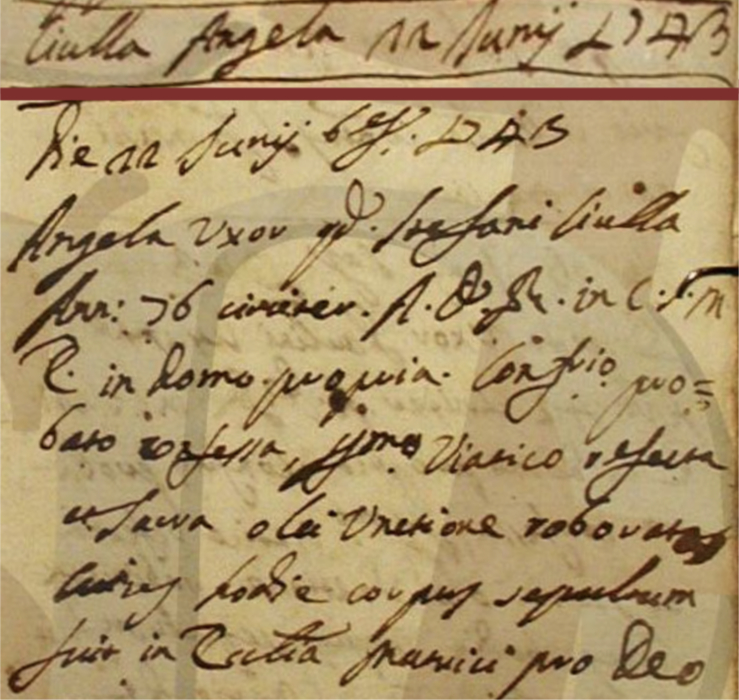 Ciulla Angela 22 Junij 1743
Die 22 Junij 6ᵉ Ind. 1743
Angela Uxor qd. Stefani Ciulla
Ann: 76 circiter. A. D. R. in C. S. M.
E. in domo propria. Confrio pro=
bato confessa, SSmo Viatico refecta
et Sacra olei Unctione roborata
cuius hodie corpus sepultum
fuit in Ecclia Matrici pro Deo